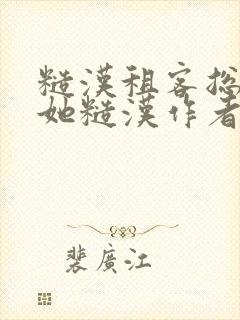 糙漢租客總
她糙漢作者
裴廣江